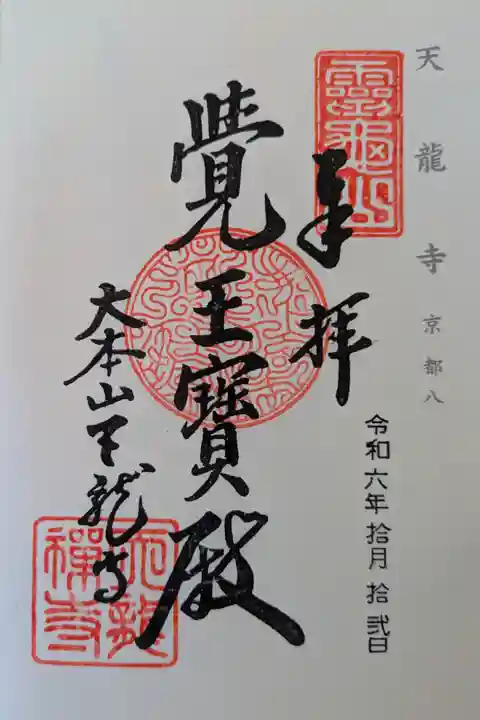 天龍寺 京都八
靈龜山
奉拝
令和六年拾月拾弐日
覺王寶殿
大本山天龍寺
天龍禅寺